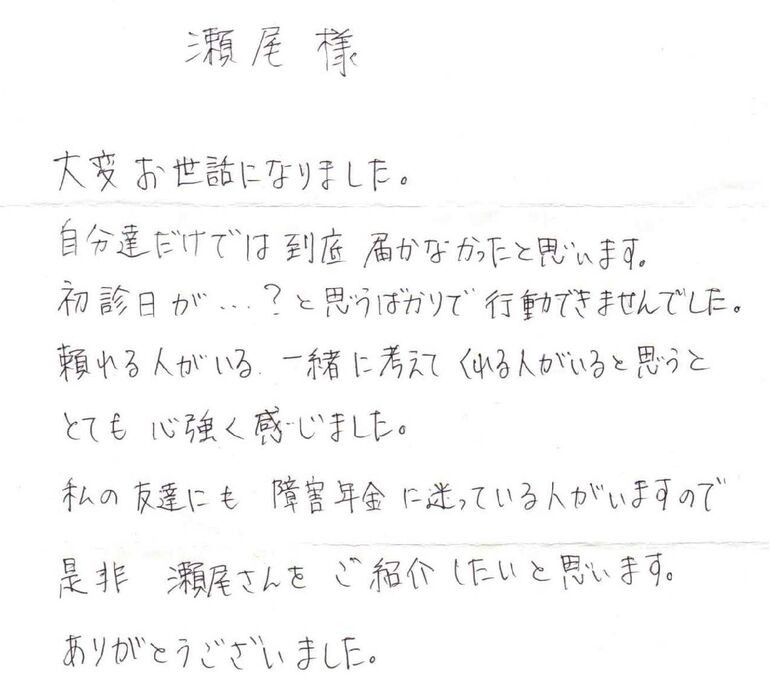 瀬尾様
大変お世話になりました。
自分達だけでは到底 届かなかったと思います。
初診日が…？と思うばかりで行動できませんでした。
頼れる人がいる、一緒に考えてくれる人がいると思うと
とても心強く感じました。
私の友達にも 障害年金に迷っている人がいますので
是非 瀬尾さんをご紹介したいと思います。
ありがとうございました。